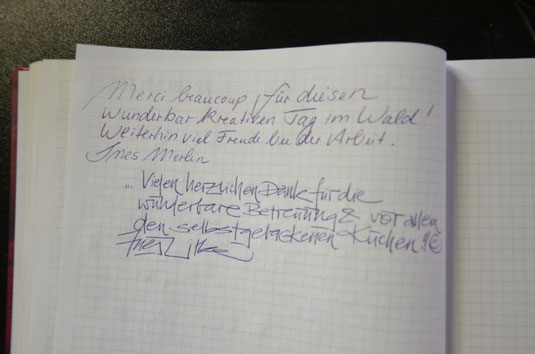 Merci beaucoup, für diesen
wunderbar kreativen Tag im Wald!
Weiterhin viel Freude bei der Arbeit.
Ines Merlin
... Vielen herzlichen Dank für die
wunderbare Betreuung & vor allem
den selbstgebackenen Kuchen!!